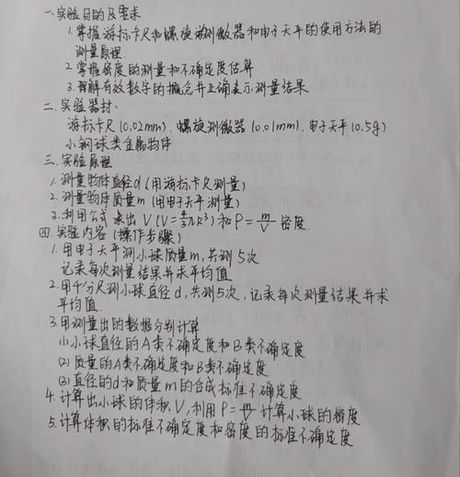 一.实验目的及要求
1.掌握游标卡尺和螺旋测微器和电子天平的使用方法的
测量原理
2.掌握密度的测量和不确定度估算
3.理解有效数字的概念并正确表示测量结果
二.实验器材:
游标卡尺(0.02mm).螺旋测微器(0.01mm).电子天平(0.5g)
小钢球类金属物体
三.实验原理
1.测量物体直径d(用游标卡尺测量)
2.测量物体质量m(用电子天平测量)
3.利用公式求出V(V=4/3πR³)和ρ=m/V密度.
四.实验内容(操作步骤)
1.用电子天平测小球质量m,共测5次
记录每次测量结果并求平均值
2.用千分尺测小球直径d,共测5次,记录每次测量结果并求
平均值.
3.用测量出的数据分别计算
(1)小球直径的A类不确定度和B类不确定度
(2)质量的A类不确定度和B类不确定度
(3)直径的d和质量m的合成标准不确定度
4.计算出小球的体积V,利用ρ=m/V计算小球的密度
5.计算体积的标准不确定度和密度的标准不确定度